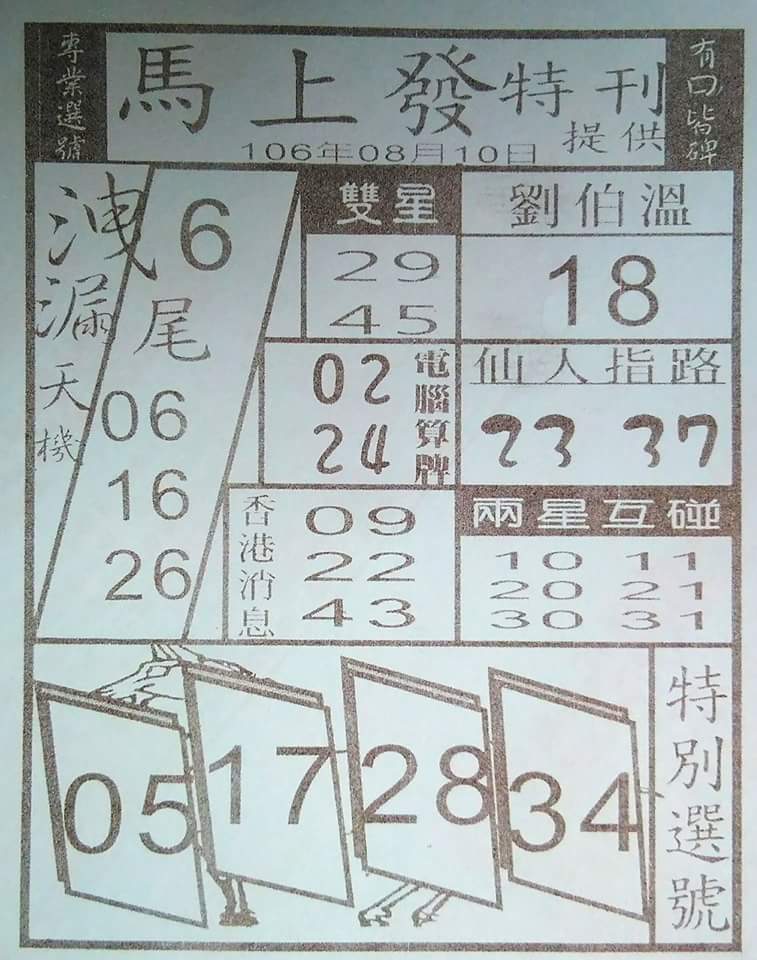 專業選號
馬上發特刊
提供
106年08月10日
有口皆碑
洩漏天機
6
尾
06
16
26
雙星
29
45
劉伯溫
18
電腦算牌
02
24
仙人指路
23 37
香港消息
09
22
43
兩星互碰
10 11
20 21
30 31
05 17 28 34
特別選號